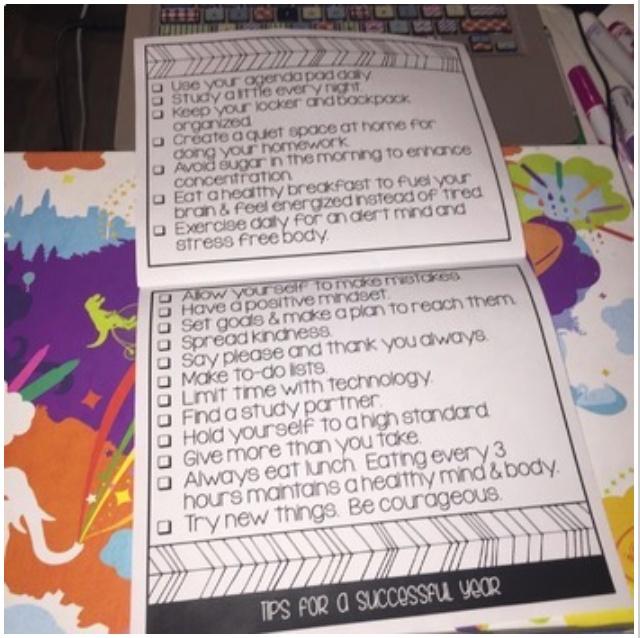 Use your agenda pad daily.
Study a little every night.
Keep your locker and backpack
organized.
Create a quiet space at home for
doing your homework.
Avoid sugar in the morning to enhance
concentration.
Eat a healthy breakfast to fuel your
brain & feel energized instead of tired.
Exercise daily for an alert mind and
stress free body.
Allow yourself to make mistakes.
Have a positive mindset.
Set goals & make a plan to reach them.
Spread kindness.
Say please and thank you always.
Make to-do lists.
Limit time with technology.
Find a study partner.
Hold yourself to a high standard.
Give more than you take.
Always eat lunch. Eating every 3
hours maintains a healthy mind & body.
Try new things. Be courageous.
TIPS FOR A SUCCESSFUL YEAR